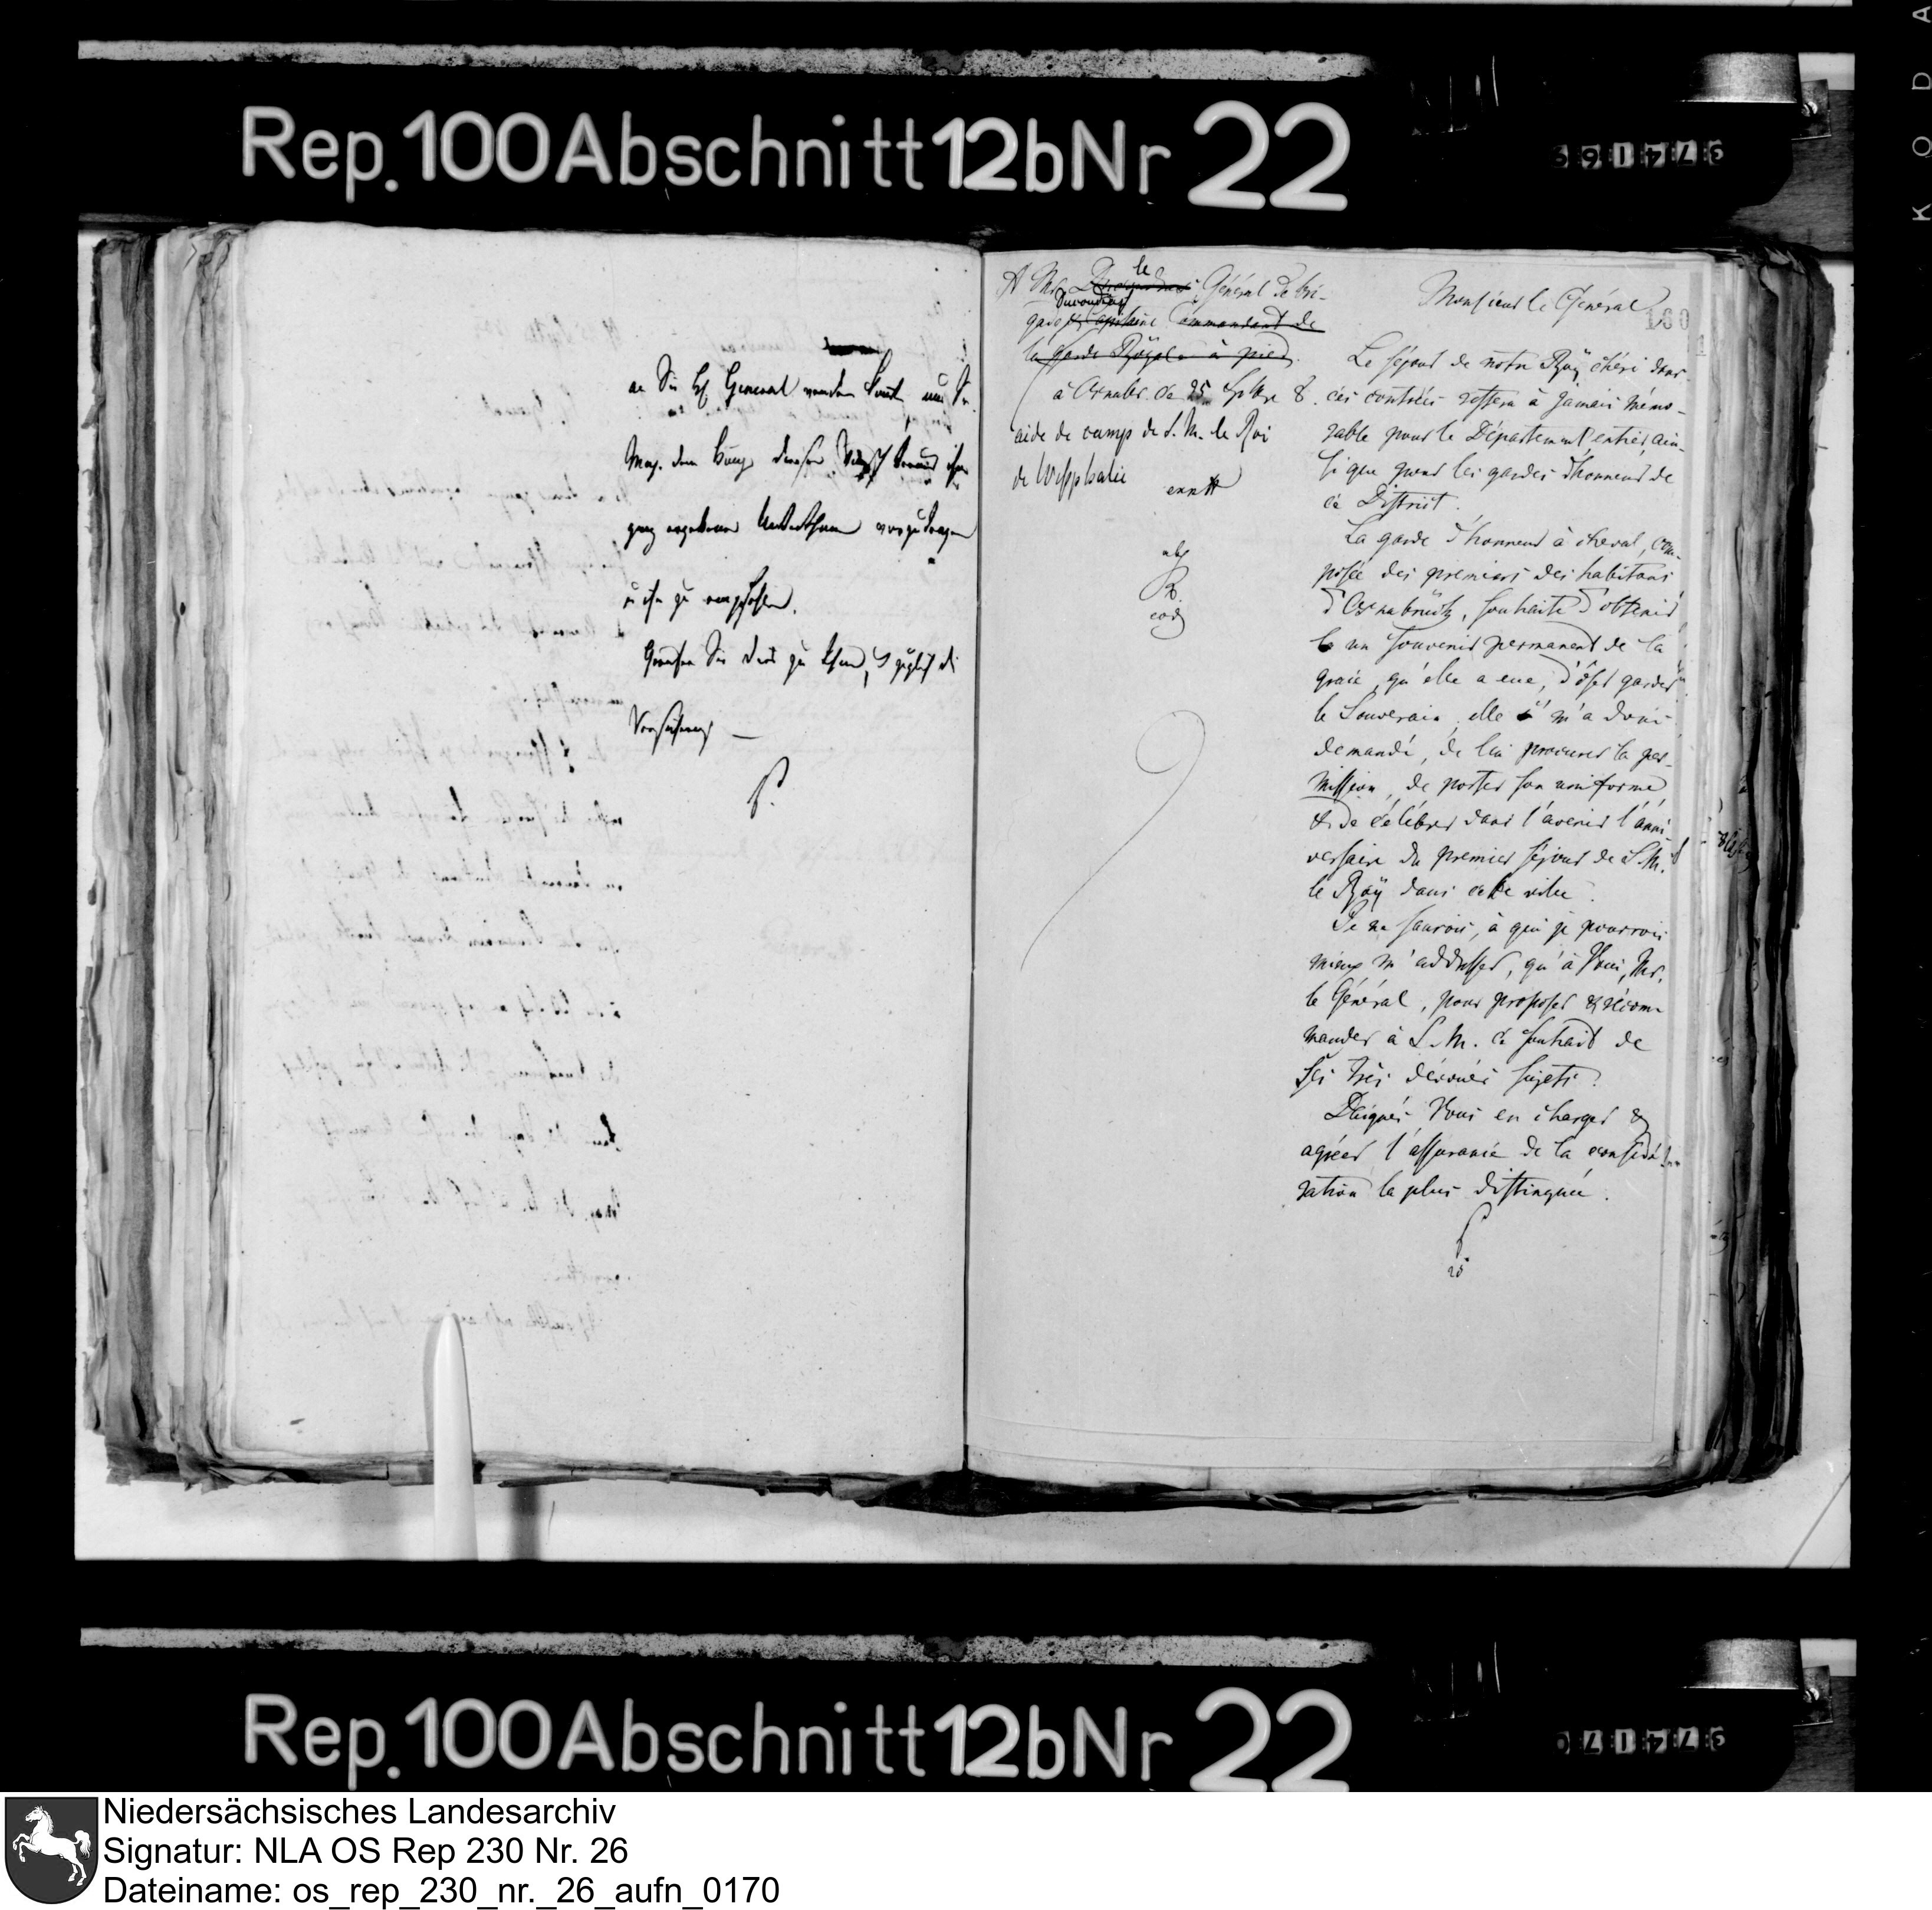 Rep. 100 Abschnitt 12b Nr 22
974169
KODA
an Sie H. General wenden Sr.
Maj. dem König diesen Wunsch
ganz ergebenen Unterthanen vorzutragen
u. ihn zu empfehlen.
Geruhen Sie dies zu thun,
Versicherung —
A Mr. le Général de bri-
gade Capitaine Commandant de
la garde Röyale à pied.
à Osnabr. ce 25 Sptbre 8.
aide de camp de S. M. le Roi
de Westphalie
abg
R.
eod
Monsieur le Général
160
Le séjour de notre Röy chéri dans
ces contrées restera à jamais mémo-
rable pour le Département entier, ain-
si que pour les gardes d'honneur de
ce District.
La garde d'honneur à cheval, com-
posée des premiers des habitans
d'Osnabrück, souhaite d'obtenir
un souvenir permanent de la
grace, qu'elle a eue, d'ôser garder
le Souverain, elle m'a donc
demandé, de lui procurer la per-
mission, de porter son uniforme
& de célébrer dans l'avenir l'anni-
versaire du premier séjour de S. M.
le Röy dans cette ville.
Je ne saurois, à qui je pourrois
mieux m'addresser, qu'à Vous, Mr.
le Général, pour proposer & recom-
mander à S. M. ce souhait de
ses très dévoués sujets.
Daignés Vous en charger &
agréer l'assurance de la considé-
ration la plus distinguée.
Rep. 100 Abschnitt 12b Nr 22
974170
Niedersächsisches Landesarchiv
Signatur: NLA OS Rep 230 Nr. 26
Dateiname: os_rep_230_nr._26_aufn_0170